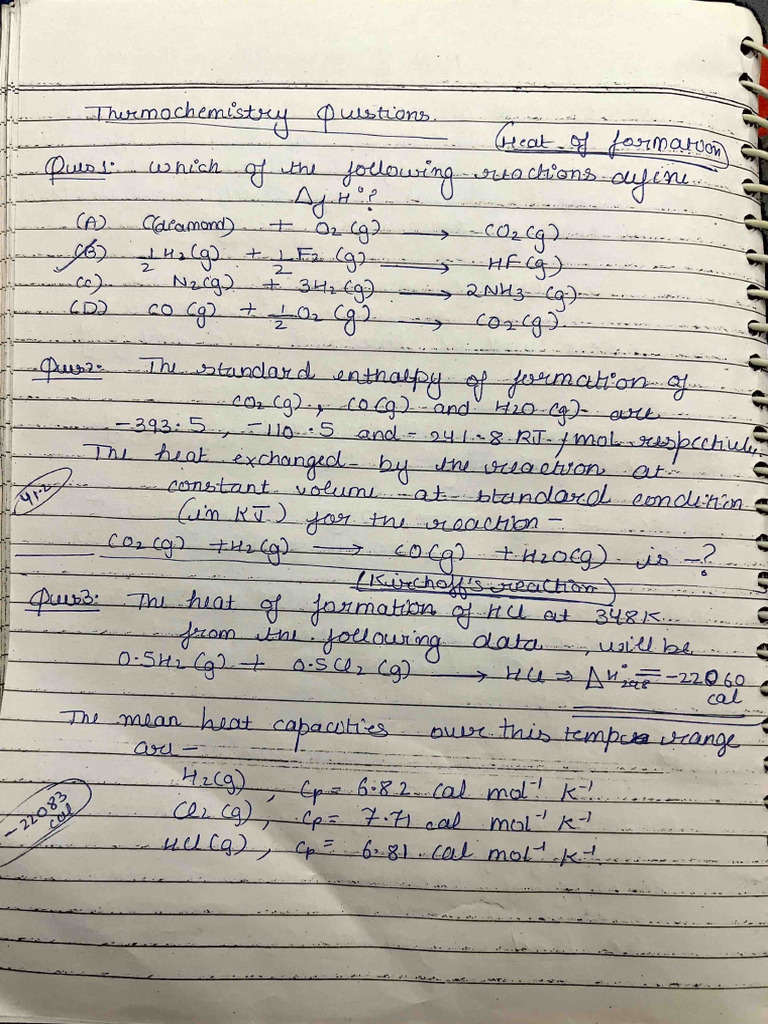 Thermochemistry Questions.
(Heat of formation)
Ques1: Which of the following reactions define
ΔfH°?
(A) C(diamond) + O2(g) → CO2(g)
(B) 1/2 H2(g) + 1/2 F2(g) → HF(g)
(C) N2(g) + 3H2(g) → 2NH3(g)
(D) CO(g) + 1/2 O2(g) → CO2(g)
Ques2: The standard enthalpy of formation of
CO2(g), CO(g) and H2O(g) are
-393.5, -110.5 and -241.8 KJ/mol respectively.
The heat exchanged by the reaction at
constant volume at standard condition
41.2
(in KJ) for the reaction-
CO2(g) + H2(g) → CO(g) + H2O(g) is -?
(Kirchoff's reaction)
Ques3: The heat of formation of HCl at 348K
from the following data, will be
0.5H2(g) + 0.5Cl2(g) → HCl ⇒ ΔH°298 = -22060
cal
The mean heat capacities over this temp range
are-
H2(g), Cp = 6.82 cal mol⁻¹ K⁻¹
-22083
cal
Cl2(g), Cp = 7.71 cal mol⁻¹ K⁻¹
HCl(g), Cp = 6.81 cal mol⁻¹ K⁻¹